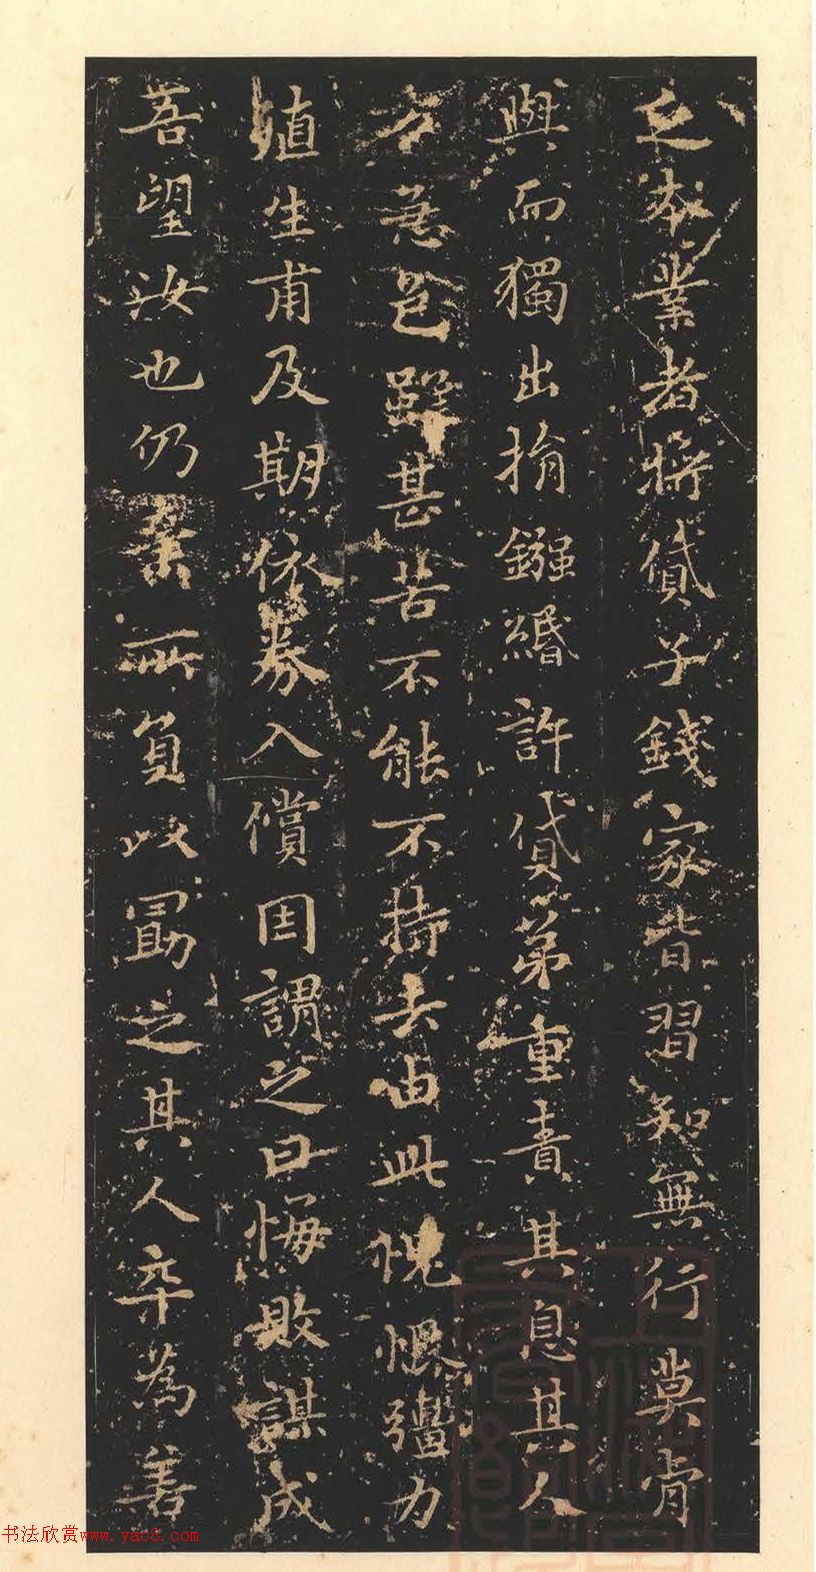 乏本業者將貸子錢家皆習知無行莫肯
與而獨出捐鏹緡許貸第重責其息其人
恚邑雖甚苦不能不持去由此愧恨彊力
殖生甫及期依券入償因謂之曰悔敗謀成
吾望汝也仍棄所負以勖之其人卒為善
书法欣赏www.yac8.com